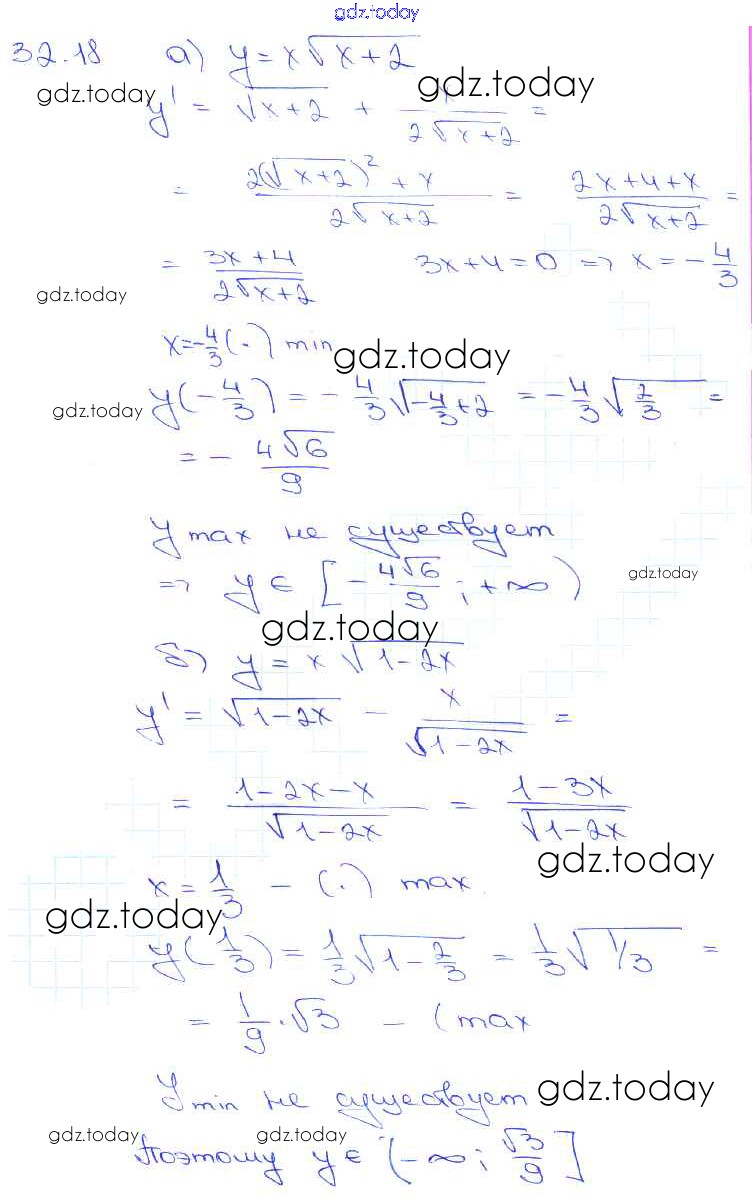 gdz.today
32.18 а) y = x√(x+2)
gdz.today gdz.today
y' = √(x+2) + x/(2√(x+2)) =
= (2(√(x+2))² + x)/(2√(x+2)) = (2x+4+x)/(2√(x+2)) =
= (3x+4)/(2√(x+2)) 3x+4=0 => x = -4/3
gdz.today
x=-4/3 (·) min
gdz.today
y(-4/3) = -4/3 √(-4/3+2) = -4/3 √(2/3) =
gdz.today
= - 4√6/9
y max не существует
=> y ∈ [-4√6/9 ; +∞)
gdz.today
gdz.today
б) y = x √(1-2x)
y' = √(1-2x) - x/√(1-2x) =
= (1-2x-x)/√(1-2x) = (1-3x)/√(1-2x)
gdz.today
x = 1/3 - (·) max.
gdz.today
y(1/3) = 1/3 √(1-2/3) = 1/3 √(1/3) =
= 1/9 · √3 - (max
y min не существует
gdz.today
gdz.today gdz.today
Поэтому y ∈ (-∞; √3/9]